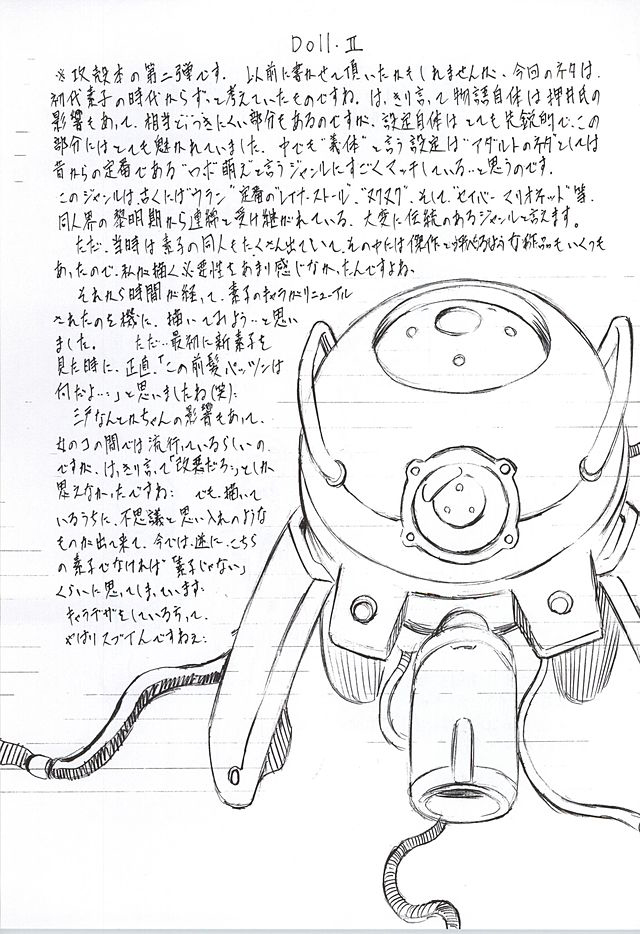 Doll.Ⅱ
※攻殻本の第二弾です。 以前に書かせて頂いたかもしれませんが、今回のネタは、
初代素子の時代からずっと考えていたものですね。はっきり言って物語自体は押井氏の
影響もあって、相当とっつきにくい部分もあるのですが、設定自体はとても先鋭的で、この
部分にはとても魅かれていました。中でも"義体"と言う設定は"アダルトのネタ"としては
昔からの定番である"ロボ萌え"と言うジャンルにすごくマッチしている…と思うのです。
このジャンルは、古くには"ウラン"定番の"レイナ・ストール"、"ヌクヌク"、そして"セイバーマリオネット"等、
同人界の黎明期から連綿と受け継がれている、大変に伝統のあるジャンルと言えます。
ただ、当時は素子の同人もたくさん出ていて、その中には傑作と呼べるような作品もいくつも
あったので、私が描く必要性をあまり感じなかったんですよね。
それから時間が経って、素子のキャラがリニューアル
されたのを機に、描いてみよう…と思い
ました。 ただ…最初に新素子を
見た時に、正直、「この前髪パッツンは
何だよ…」と思いましたね(笑)
三戸なんとかちゃんの影響もあって、
女のコの間では流行っているらしいの
ですが、はっきり言って「改悪だろ…」としか
思えなかったですね… でも、描いて
いるうちに、不思議と思い入れのような
ものが出て来て、今では、逆に、こちら
の素子でなければ「素子じゃない」
くらいに思ってしまっています…
キャラデザをしている方って、
やはりスゴイんですねェ…